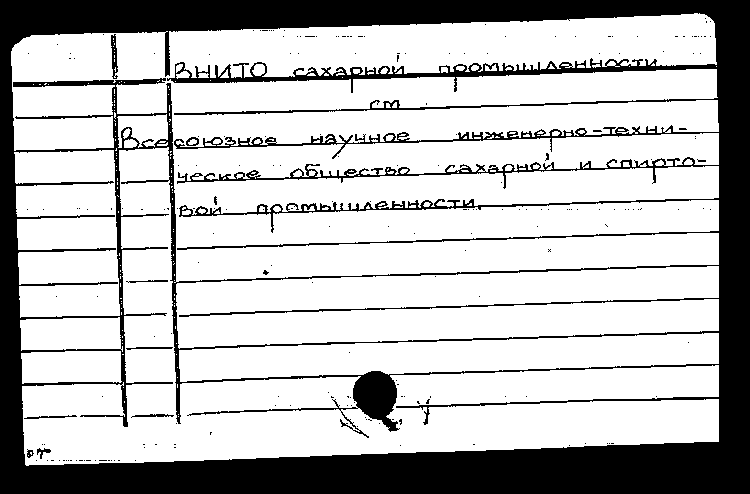 ВНИТО сахарной промышленности
см
Всесоюзное научное инженерно-техни-
ческое общество сахарной и спирто-
вой промышленности.